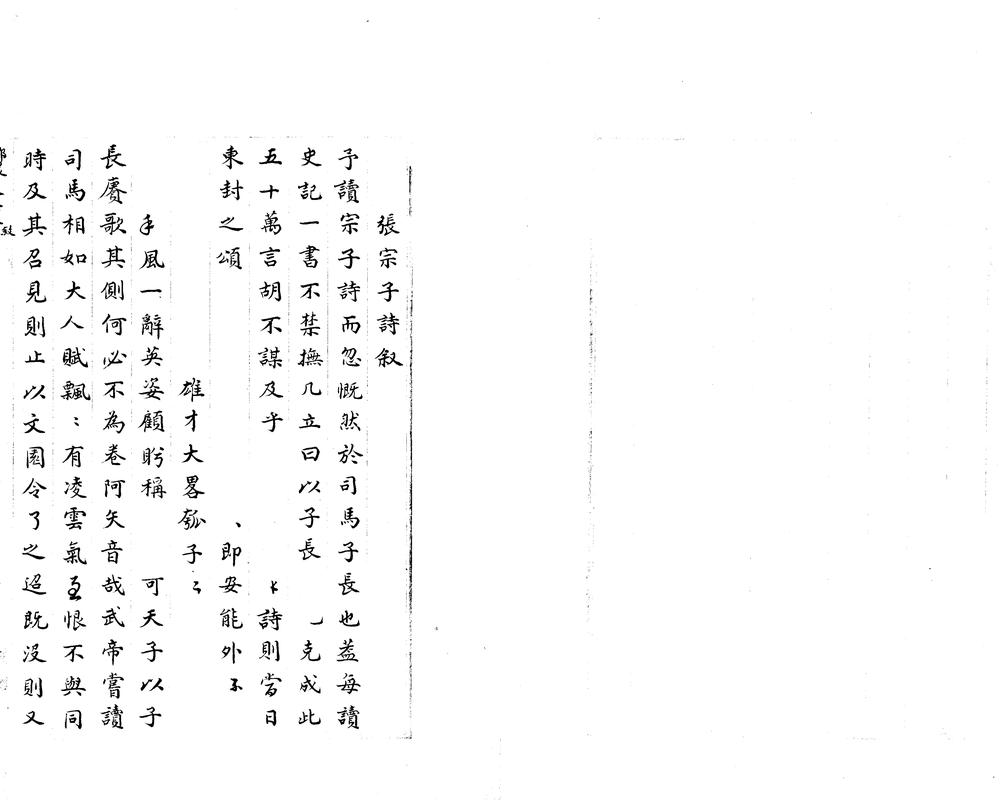 張宗子詩敘
予讀宗子詩而忽慨然於司馬子長也葢每讀
史記一書不禁撫几立曰以子長 克成此
五十萬言胡不謀及乎 詩則當日
東封之頌 即安能外
雄才大畧瓠子
風一辭英姿顧盻稱 可天子以子
長賡歌其側何必不為卷阿矢音哉武帝嘗讀
司馬相如大人賦飄〻有凌雲氣至恨不與同
時及其召見則止以文園令了之迨既沒則又